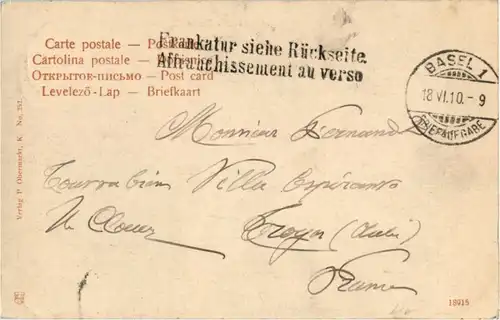 Carte postale — Postkarte
Cartolina postale —
Открытое-письмо — Post card
Levelező-Lap — Briefkaart
Frankatur siehe Rückseite.
Affranchissement au verso
BASEL 1
18 VI.10.-9
BRIEFAUFGABE
Monsieur Fernand
Villa Espéranto
Troyes (Aube)
France
Verlag P. Obermarkt, K. No.
18915